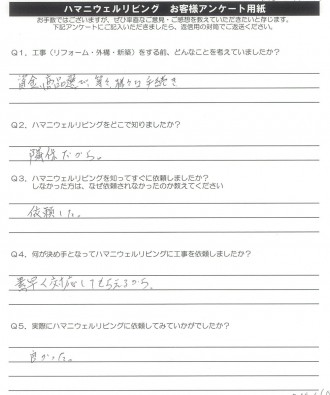 ハマニウェルリビング　お客様アンケート用紙
お手数ではございますが、ぜひ率直なご意見・ご感想を教えていただきたいと存じます。
下記アンケートにご記入いただきましたら、返信用の封筒でご返送ください。
Q1、工事（リフォーム・外構・新築）をする前、どんなことを考えていましたか？
資金、商品選び、等々、様々な手続き
Q2、ハマニウェルリビングをどこで知りましたか？
隣保だから。
Q3、ハマニウェルリビングを知ってすぐに依頼しましたか？
しなかった方は、なぜ依頼されなかったのか教えてください
依頼した。
Q4、何が決め手となってハマニウェルリビングに工事を依頼しましたか？
素早く対応してもらえるから、
Q5、実際にハマニウェルリビングに依頼してみていかがでしたか？
良かった。